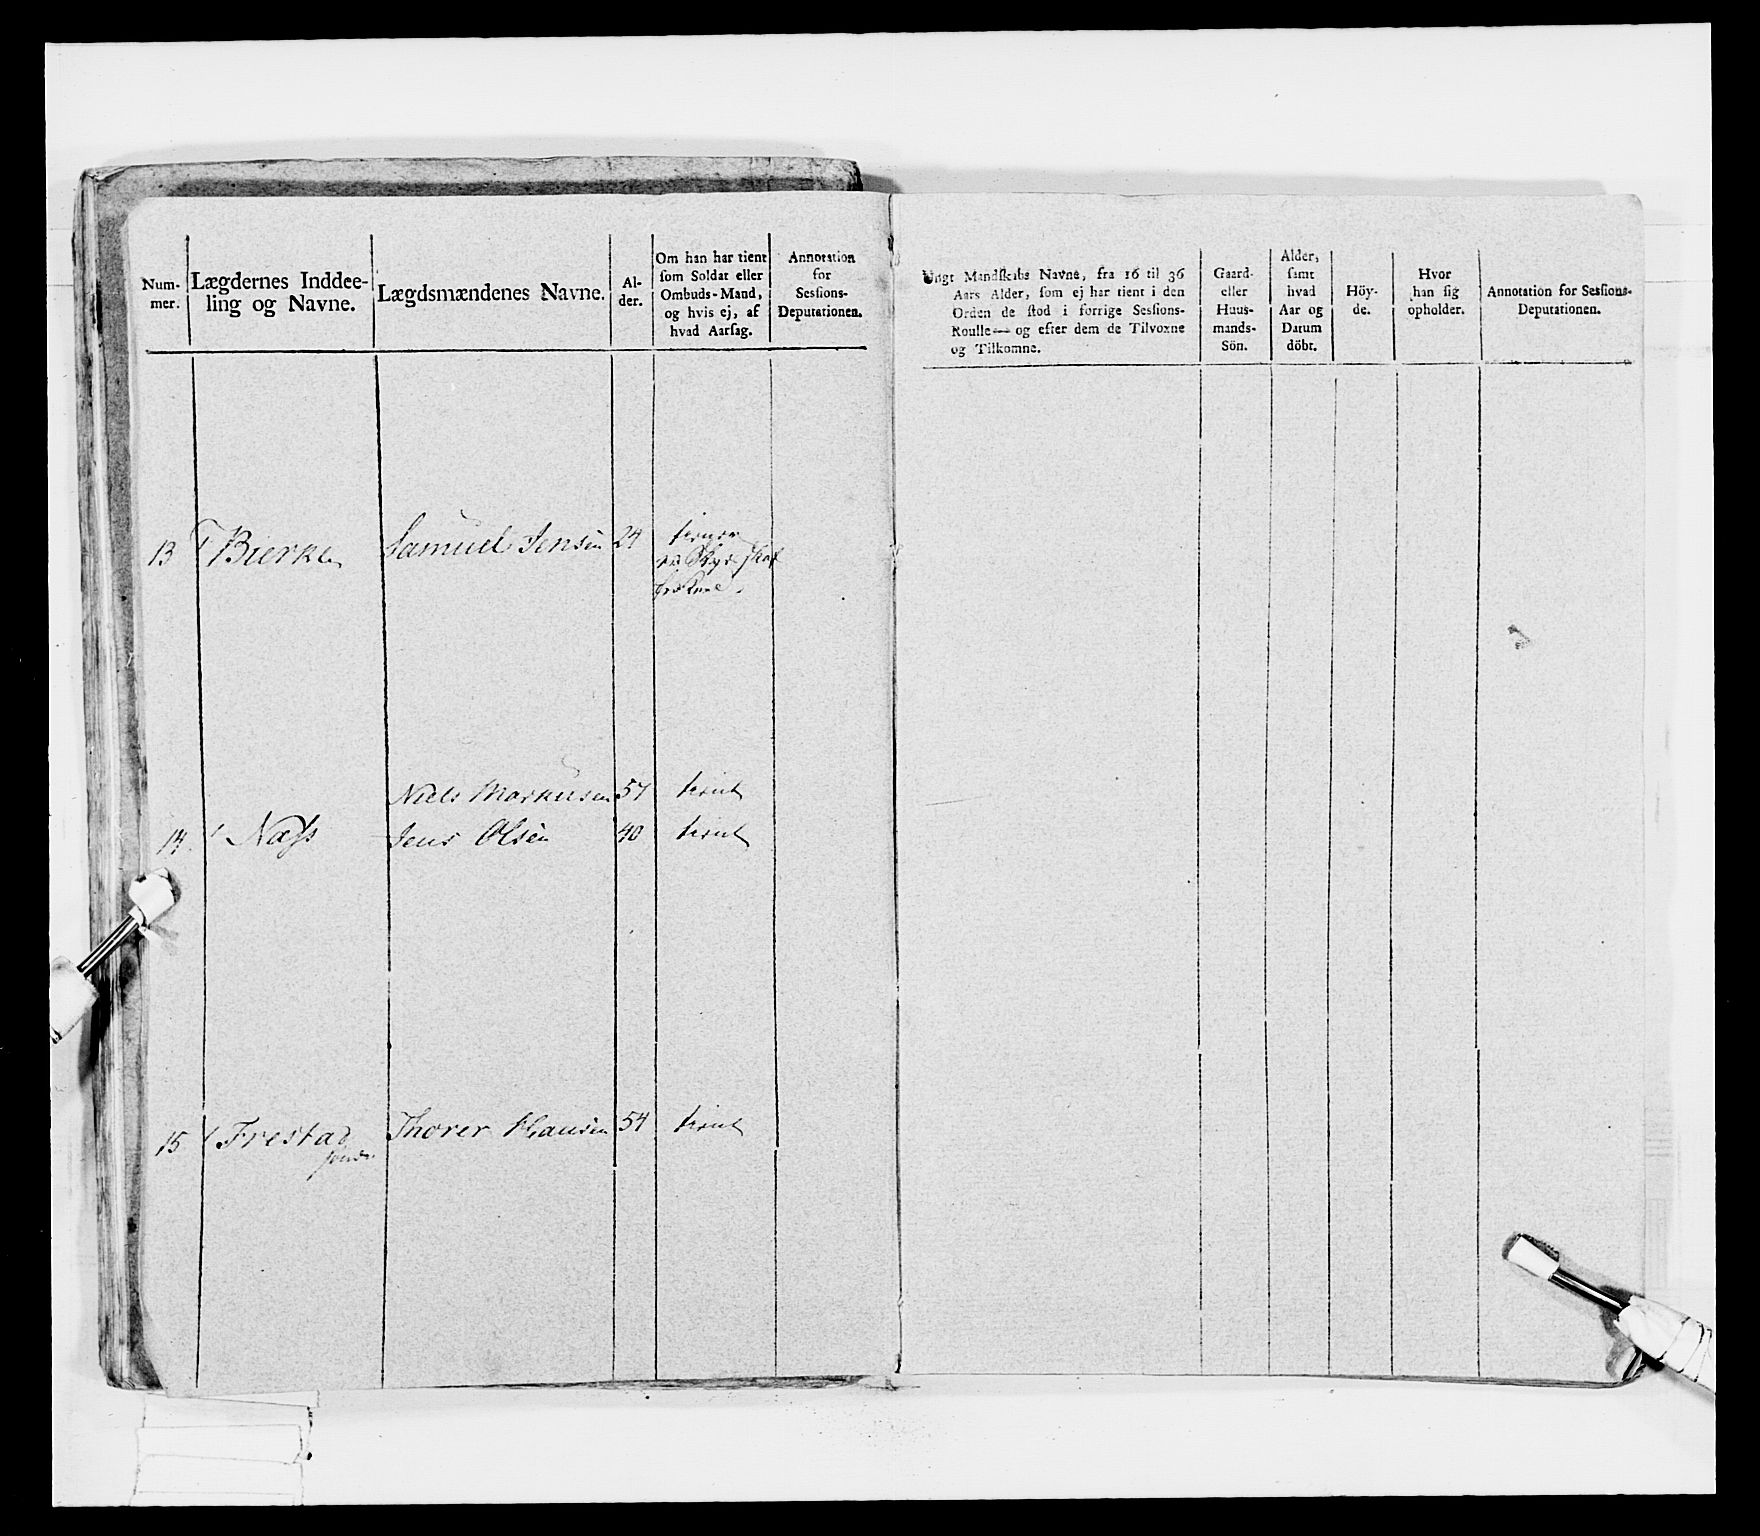 Num-
mer.
Lægdernes Inddee-
ling og Navne.
Lægdsmændenes Navne.
Al-
der.
Om han har tient
som Soldat eller
Ombuds-Mand,
og hvis ej, af
hvad Aarsag.
Annotation
for
Sessions-
Deputationen.
Ungt Mandskabs Navne, fra 16 til 36
Aars Alder, som ej har tient i den
Orden de stod i forrige Sessions-
Roulle— og efter dem de Tilvoxne
og Tilkomne.
Gaard-
eller
Huus-
mands-
Sön.
Alder,
samt
hvad
Aar og
Datum
döbt.
Höy-
de.
Hvor
han sig
opholder.
Annotation for Sessions-
Deputationen.
13 Bierke Samuel Jensen 24
Niels Markusen 57 tient
14. Næss Jens Olsen 40 tient
15 Frestad Thorer Hansen 54 tient